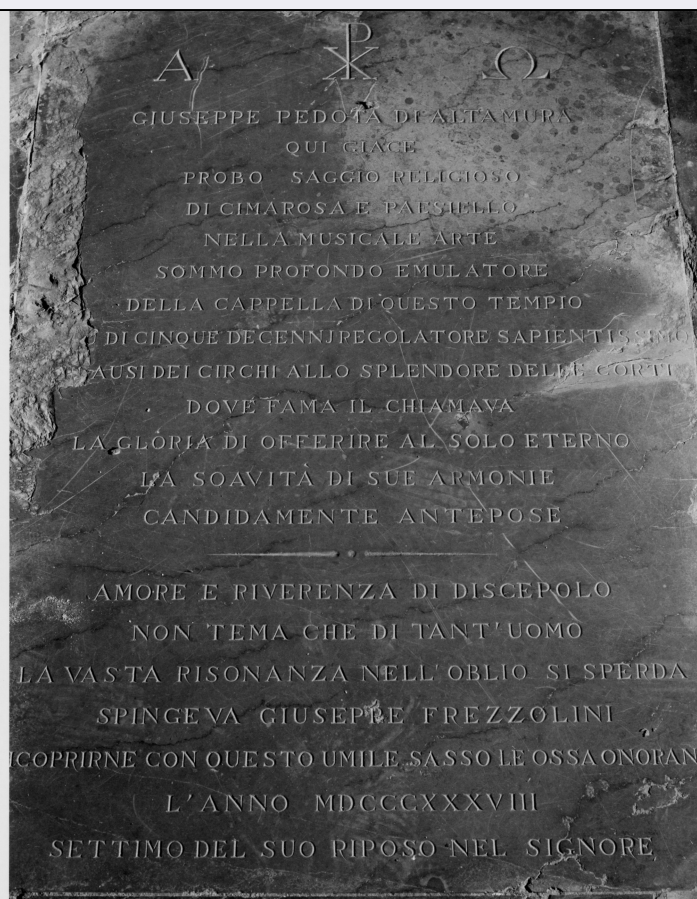 Α ☧ Ω
GIUSEPPE PEDOTA DI ALTAMURA
QUI GIACE
PROBO SAGGIO RELIGIOSO
DI CIMAROSA E PAESIELLO
NELLA MUSICALE ARTE
SOMMO PROFONDO EMULATORE
DELLA CAPPELLA DI QUESTO TEMPIO
DI CINQUE DECENNJ REGOLATORE SAPIENTISSIMO
AUSI DEI CIRCHI ALLO SPLENDORE DELLE CORTI
DOVE FAMA IL CHIAMAVA
LA GLORIA DI OFFERIRE AL SOLO ETERNO
LA SOAVITÀ DI SUE ARMONIE
CANDIDAMENTE ANTEPOSE
AMORE E RIVERENZA DI DISCEPOLO
NON TEMA CHE DI TANT'UOMO
LA VASTA RISONANZA NELL'OBLIO SI SPERDA
SPINGEVA GIUSEPPE FREZZOLINI
ICOPRIRNE CON QUESTO UMILE SASSO LE OSSA ONORAN
L'ANNO MDCCCXXXVIII
SETTIMO DEL SUO RIPOSO NEL SIGNORE